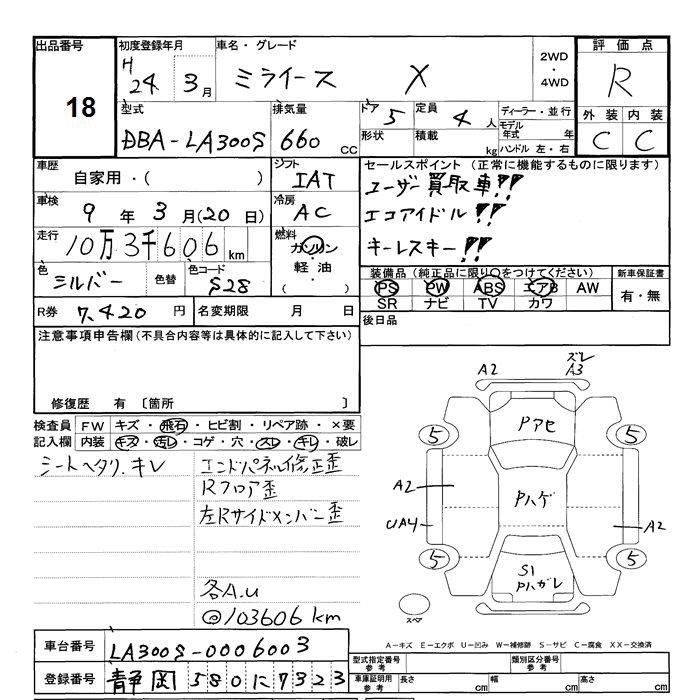 出品番号 初度登録年月 車名・グレード 評価点
18 H 24 3月 ミライース X 2WD ・ 4WD R
型式 排気量 ドア 5 定員 4人 ディーラー・並行 外装 内装
DBA-LA300S 660 CC 形状 積載 kg モデル年式 年 ハンドル 左・右 C C
車歴 自家用・( ) シフト IAT セールスポイント (正常に機能するものに限ります)
車検 9年3月(20日) 冷房 AC ユーザー買取車!!
走行 10万3千606km 燃料 ガソリン・軽油・( ) エコアイドル!!
キーレスキー!!
色 シルバー 色替 色コード S28 装備品 (純正品に限り○をつけてください) 新車保証書
PS PW ABS エアB AW 有・無
SR ナビ TV カワ
R券 7,420円 名変期限 月 日 後日品
注意事項申告欄 (不具合内容等は具体的に記入して下さい)
修復歴 有 〔箇所 〕
検査員 FW キズ・飛石・ヒビ割・リペア跡・×要
記入欄 内装 キズ・汚レ・コゲ・穴・スレ・キレ・破レ
シートヘタリ.キレ エンドパネル修正歪
Rフロア歪
左Rサイドメンバー歪
各A.U
@103606km
A2 ズレ A3
Pアセ
5 5
A2 Pハゲ
UA4 A2
5 5
S1 Pハガレ
スペア
A-キズ E-エクボ U-凹み W-補修跡 S-サビ C-腐食 XX-交換済
車台番号 LA300S-0006003 型式指定番号 参考 類別区分番号 参考
登録番号 静岡580に7323 車庫証明用 参考 長さ cm 幅 cm 高さ cm